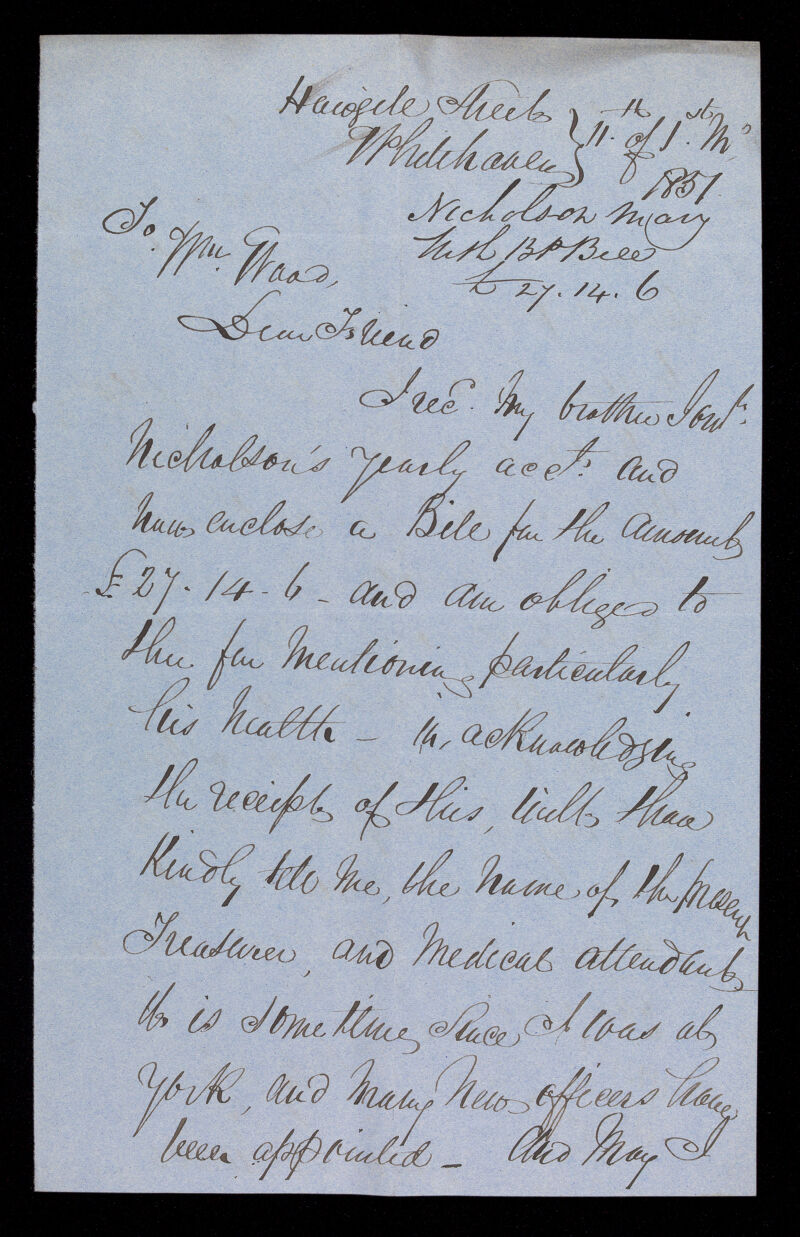 Howgile Street
Whitehaven } 11th of 1st Mo
1851
Nicholson Mary
with Bill
£ 27.14.6
To Wm Wood,
Dear Friend
I recd. my brother Jonth.
Nicholson's yearly acct. and
now enclose a Bill for the amount
£ 27.14.6 - and am obliged to
thee for mentioning particularly
his health - in acknowledging
the receipt of this, will thou
kindly tell me, the name of the present
Treasurer, and Medical attendant
it is some time since I was at
York, and many new officers have
been appointed - And may I